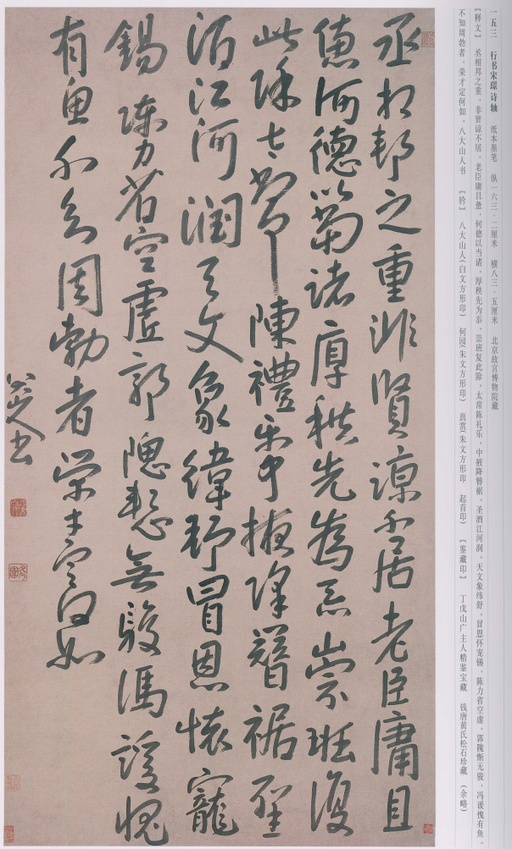 一五三 行书宋璟诗轴 纸本墨笔 纵一六三·二厘米 横八三·五厘米 北京故宫博物院藏
【释文】 丞相邦之重，非贤谅不居。老臣庸且惫，何德以当诸。厚秩先为忝，崇班复此除。太常陈礼乐，中掖降簪裾。圣酒江河润，天文象纬舒。冒恩怀宠锡，陈力省空虚。郭隗惭无骏，冯谖愧有鱼。
不知周勃者，荣才定何如。八大山人书 【钤】 八大山人(白文方形印) 何园(朱文方形印) 真赏(朱文方形印 起首印) 【鉴藏印】 丁戊山广主人精鉴宝藏 钱唐黄氏松石珍藏 (余略)
丞相邦之重非賢諒不居老臣庸且
憊何德以當諸厚秩先為忝崇班復
此除太常陳禮樂中掖降簪裾聖
酒江河潤天文象緯舒冒恩懷寵
錫陳力省空虛郭隗慙無駿馮諼愧
有魚不知周勃者榮才定何如
八大山人書